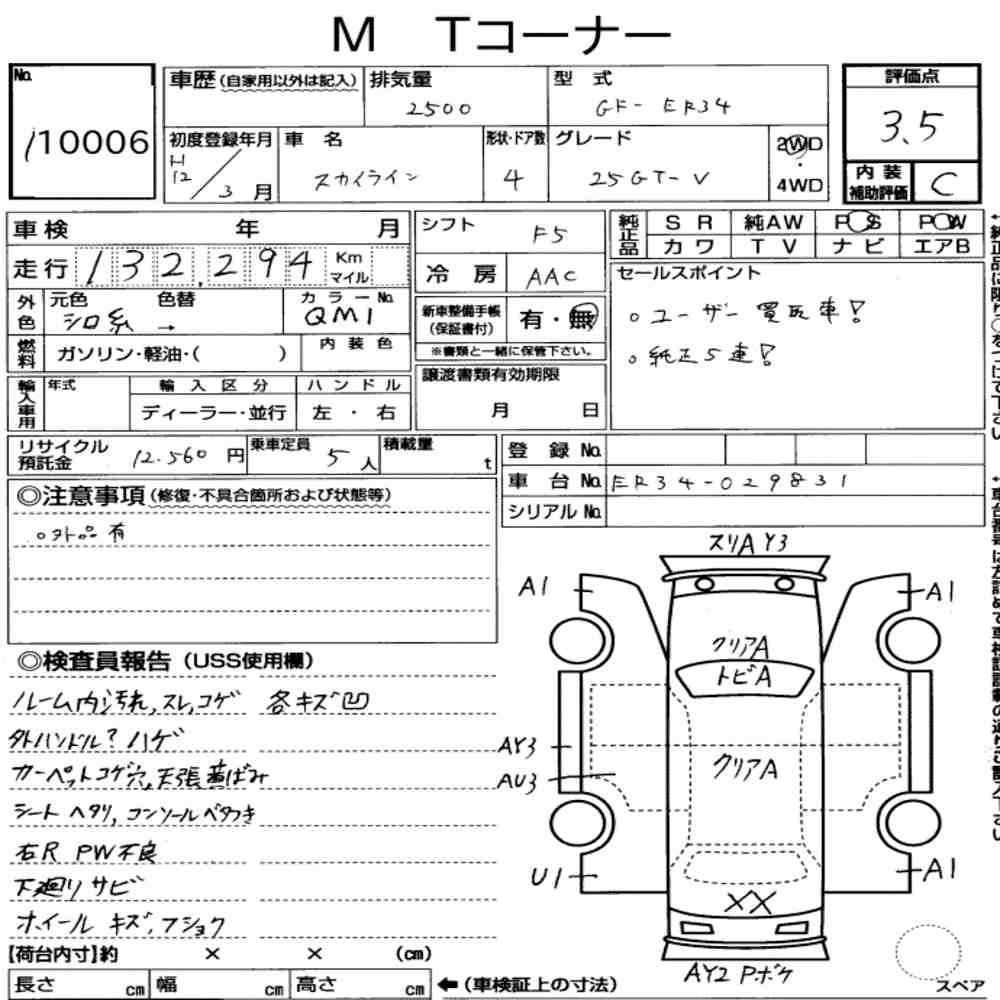 M Tコーナー
No.
110006
車歴 (自家用以外は記入)
排気量
2500
型式
GF-ER34
評価点
3.5
初度登録年月
H12/3月
車名
スカイライン
形状・ドア数
4
グレード
25GT-V
2WD
・
4WD
内装
補助評価
C
車検 年 月
走行 132,294 Km マイル
外色
元色 色替
シロ系 →
カラーNo.
QM1
燃料
ガソリン・軽油・( )
内装色
輸入車用
年式
輸入区分
ディーラー・並行
ハンドル
左・右
シフト
F5
冷房
AAC
新車整備手帳
(保証書付)
有・無
※書類と一緒に保管下さい。
譲渡書類有効期限
月 日
純正品
SR 純AW PS PW
カワ TV ナビ エアB
セールスポイント
。ユーザー買取車!
。純正5速!
リサイクル
預託金
12.560円
乗車定員
5人
積載量
t
登録No.
車台No. ER34-029831
シリアルNo.
◎注意事項(修復・不具合箇所および状態等)
。外品有
◎検査員報告(USS使用欄)
ルーム内汚れ,スレ,コゲ 各キズ凹
外ハンドル?ハゲ
カーペットコゲ穴,天張黄ばみ
シートヘタリ,コンソールベタつき
右R PW不良
下廻りサビ
ホイールキズ,フショク
【荷台内寸】約 × × (cm)
長さ cm 幅 cm 高さ cm ←(車検証上の寸法)
スリA Y3
A1
A1
クリアA
トビA
AY3
クリアA
AU3
U1
A1
XX
AY2 Pボケ
スペア